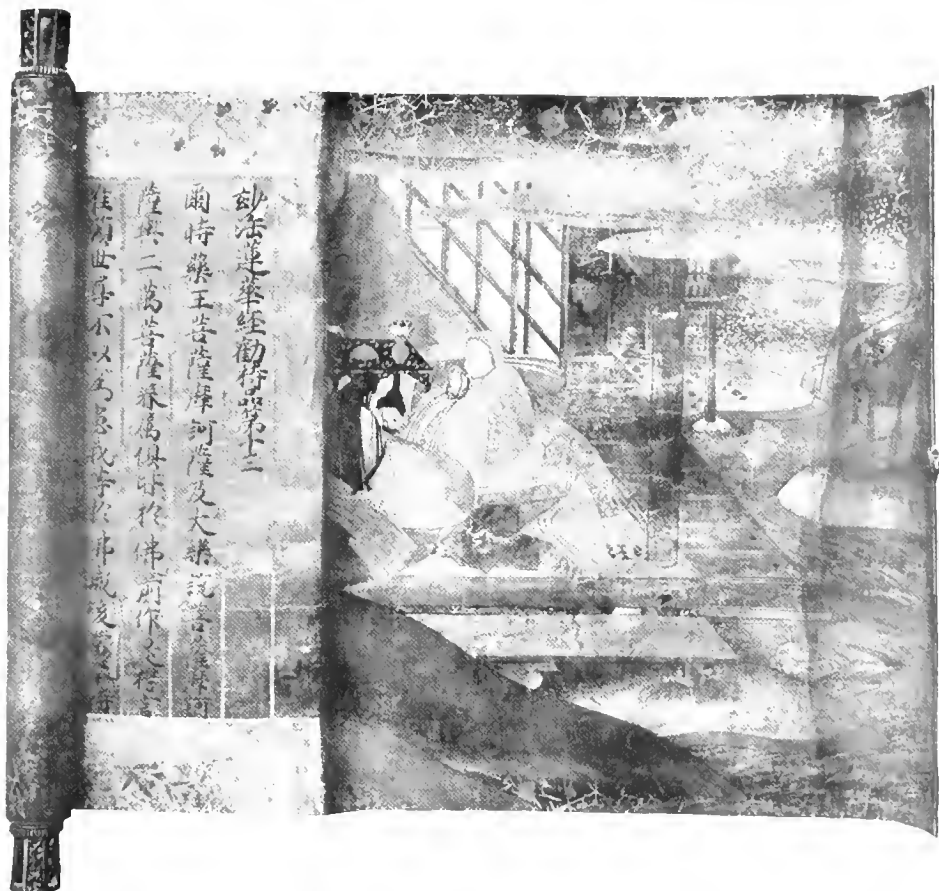 妙法蓮華經勸持品第十二
爾時藥王菩薩摩訶薩及大樂説菩薩摩訶
薩與二萬菩薩眷屬俱皆於佛前作是誓言
唯願世尊不以為慮我等於佛滅後當奉持